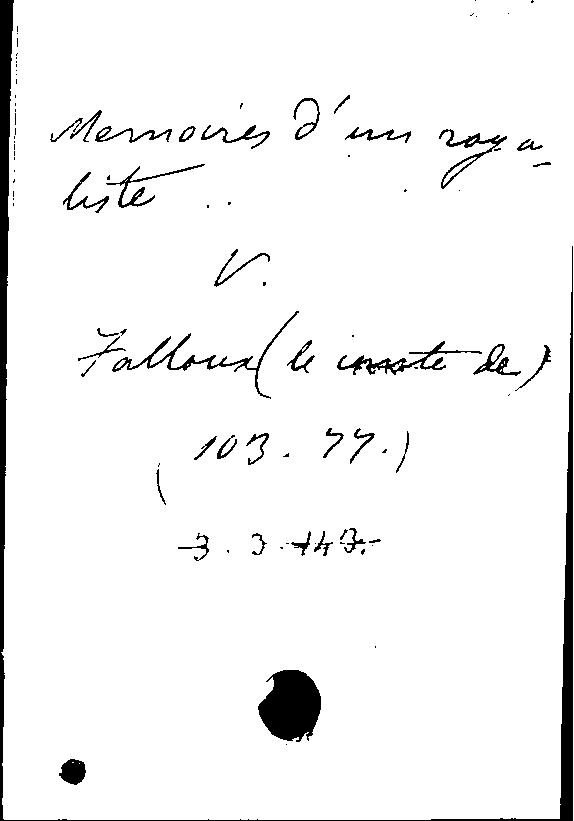 Memoires d'un roya-
liste ..
V.
Falloux (le comte de)
(103. 77.)
3. 3. 143.